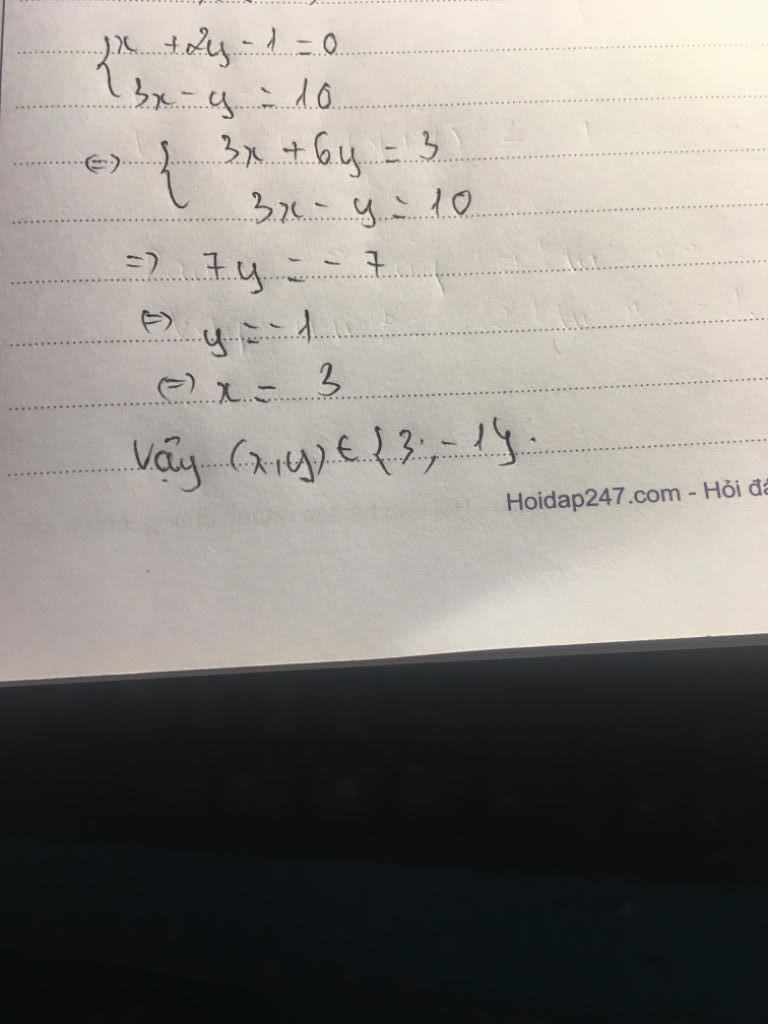 {x + 2y - 1 = 0
3x - y = 10
<=> { 3x + 6y = 3
3x - y = 10
=> 7y = - 7
<=> y = - 1
<=> x = 3
Vậy (x,y) ∈ {3;-1}.
Hoidap247.com - Hỏi đá